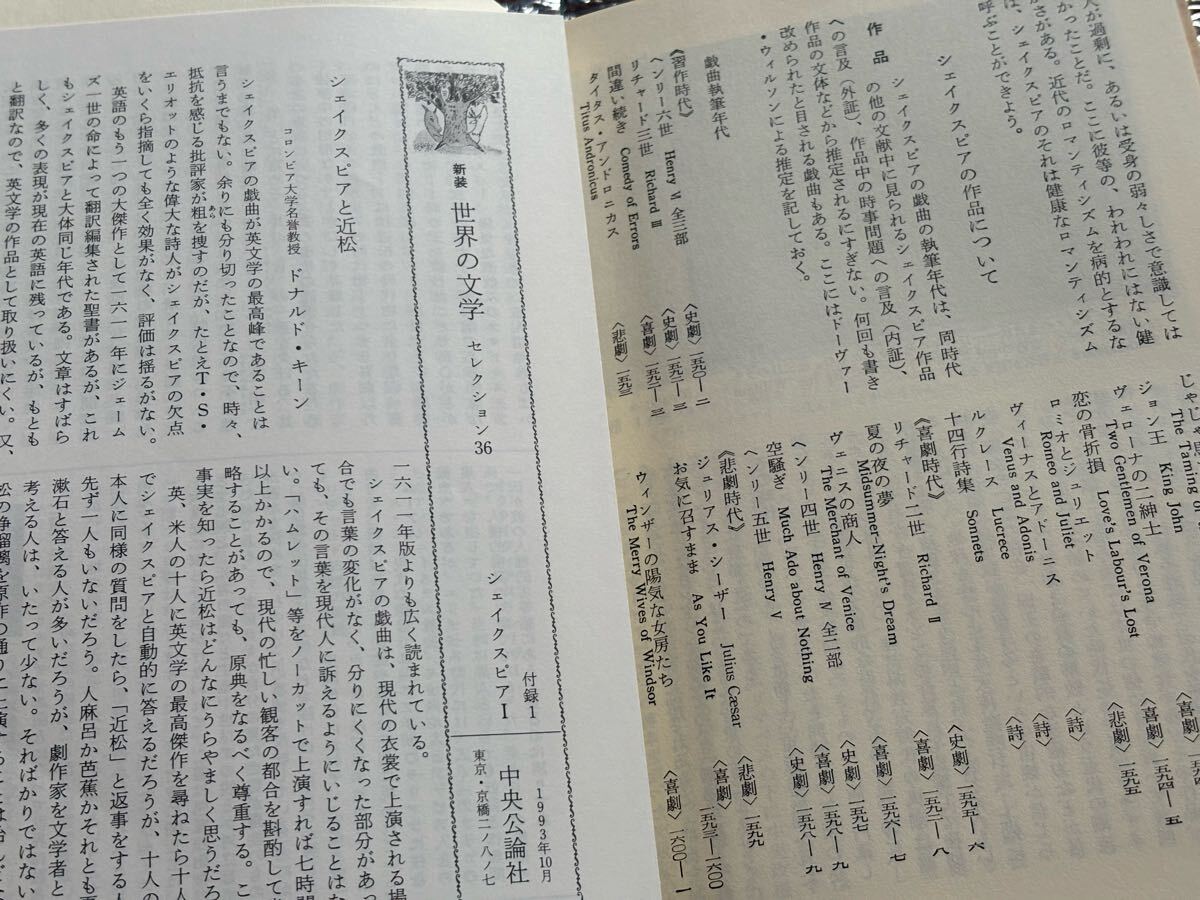 人が過剰に、あるいは受身の弱々しさで意識しては
かったことだ。ここに彼等の、われわれにはない健
かさがある。近代のロマンティシズムを病的とするな
は、シェイクスピアのそれは健康なロマンティシズム
呼ぶことができよう。
シェイクスピアの作品について
作品
シェイクスピアの戯曲の執筆年代は、同時代
の他の文献中に見られるシェイクスピア作品
への言及（外証）、作品中の時事問題への言及（内証）、
作品の文体などから推定されるにすぎない。何回も書き
改められたと目される戯曲もある。ここにはドーヴァー
・ウィルソンによる推定を記しておく。
戯曲執筆年代
《習作時代》
ヘンリー六世 Henry Ⅵ 全三部 〈史劇〉 一五九〇―二
リチャード三世 Richard Ⅲ 〈史劇〉 一五九二―三
間違い続き Comedy of Errors 〈喜劇〉 一五九二―三
タイタス・アンドロニカス
Titus Andronicus 〈悲劇〉 一五九三
The Taming of 〈喜劇〉
ジョン王 King John
ヴェローナの二紳士
Two Gentlemen of Verona 〈喜劇〉 一五九四―五
恋の骨折損 Love's Labour's Lost
ロミオとジュリエット
Romeo and Juliet 〈悲劇〉 一五九五
ヴィーナスとアドーニス
Venus and Adonis 〈詩〉
ルクレース Lucrece 〈詩〉
十四行詩集 Sonnets 〈詩〉
《喜劇時代》
リチャード二世 Richard Ⅱ 〈史劇〉 一五九五―六
夏の夜の夢
Midsummer-Night's Dream 〈喜劇〉 一五九二―八
ヴェニスの商人
The Merchant of Venice 〈喜劇〉 一五九六―七
ヘンリー四世 Henry Ⅳ 全二部 〈史劇〉 一五九七
空騒ぎ Much Ado about Nothing 〈喜劇〉 一五九八―九
ヘンリー五世 Henry Ⅴ 〈史劇〉 一五九八―九
《悲劇時代》
ジュリアス・シーザー Julius Cæsar 〈悲劇〉 一五九九
お気に召すまま As You Like It 〈喜劇〉 一五九三―一六〇〇
ウィンザーの陽気な女房たち
The Merry Wives of Windsor 〈喜劇〉 一六〇〇―一
新装 世界の文学 セレクション36
シェイクスピアⅠ
付録1
1993年10月
中央公論社
東京・京橋二ノ八ノ七
シェイクスピアと近松
コロンビア大学名誉教授 ドナルド・キーン
シェイクスピアの戯曲が英文学の最高峰であることは
言うまでもない。余りにも分り切ったことなので、時々、
抵抗を感じる批評家が粗を捜すのだが、たとえT・S・
あら
エリオットのような偉大な詩人がシェイクスピアの欠点
をいくら指摘しても全く効果がなく、評価は揺るがない。
英語のもう一つの大傑作として一六一一年にジェーム
ズ一世の命によって翻訳編集された聖書があるが、これ
もシェイクスピアと大体同じ年代である。文章はすばら
しく、多くの表現が現在の英語に残っているが、もとも
と翻訳なので、英文学の作品として取り扱いにくい。又、
一六一一年版よりも広く読まれている。
シェイクスピアの戯曲は、現代の衣裳で上演される場
合でも言葉の変化がなく、分りにくくなった部分があっ
ても、その言葉を現代人に訴えるようにいじることはな
い。「ハムレット」等をノーカットで上演すれば七時間
以上かかるので、現代の忙しい観客の都合を斟酌して
略することがあっても、原典をなるべく尊重する。こ
事実を知ったら近松はどんなにうらやましく思うだろ
英、米人の十人に英文学の最高傑作を尋ねたら十人
でシェイクスピアと自動的に答えるだろうが、十人の
本人に同様の質問をしたら、「近松」と返事をする人
先ず一人もいないだろう。人麻呂か芭蕉かそれとも
漱石と答える人が多いだろうが、劇作家を文学者と
考える人は、いたって少ない。そればかりではない
松の浄瑠璃を原作の通りに上演することは